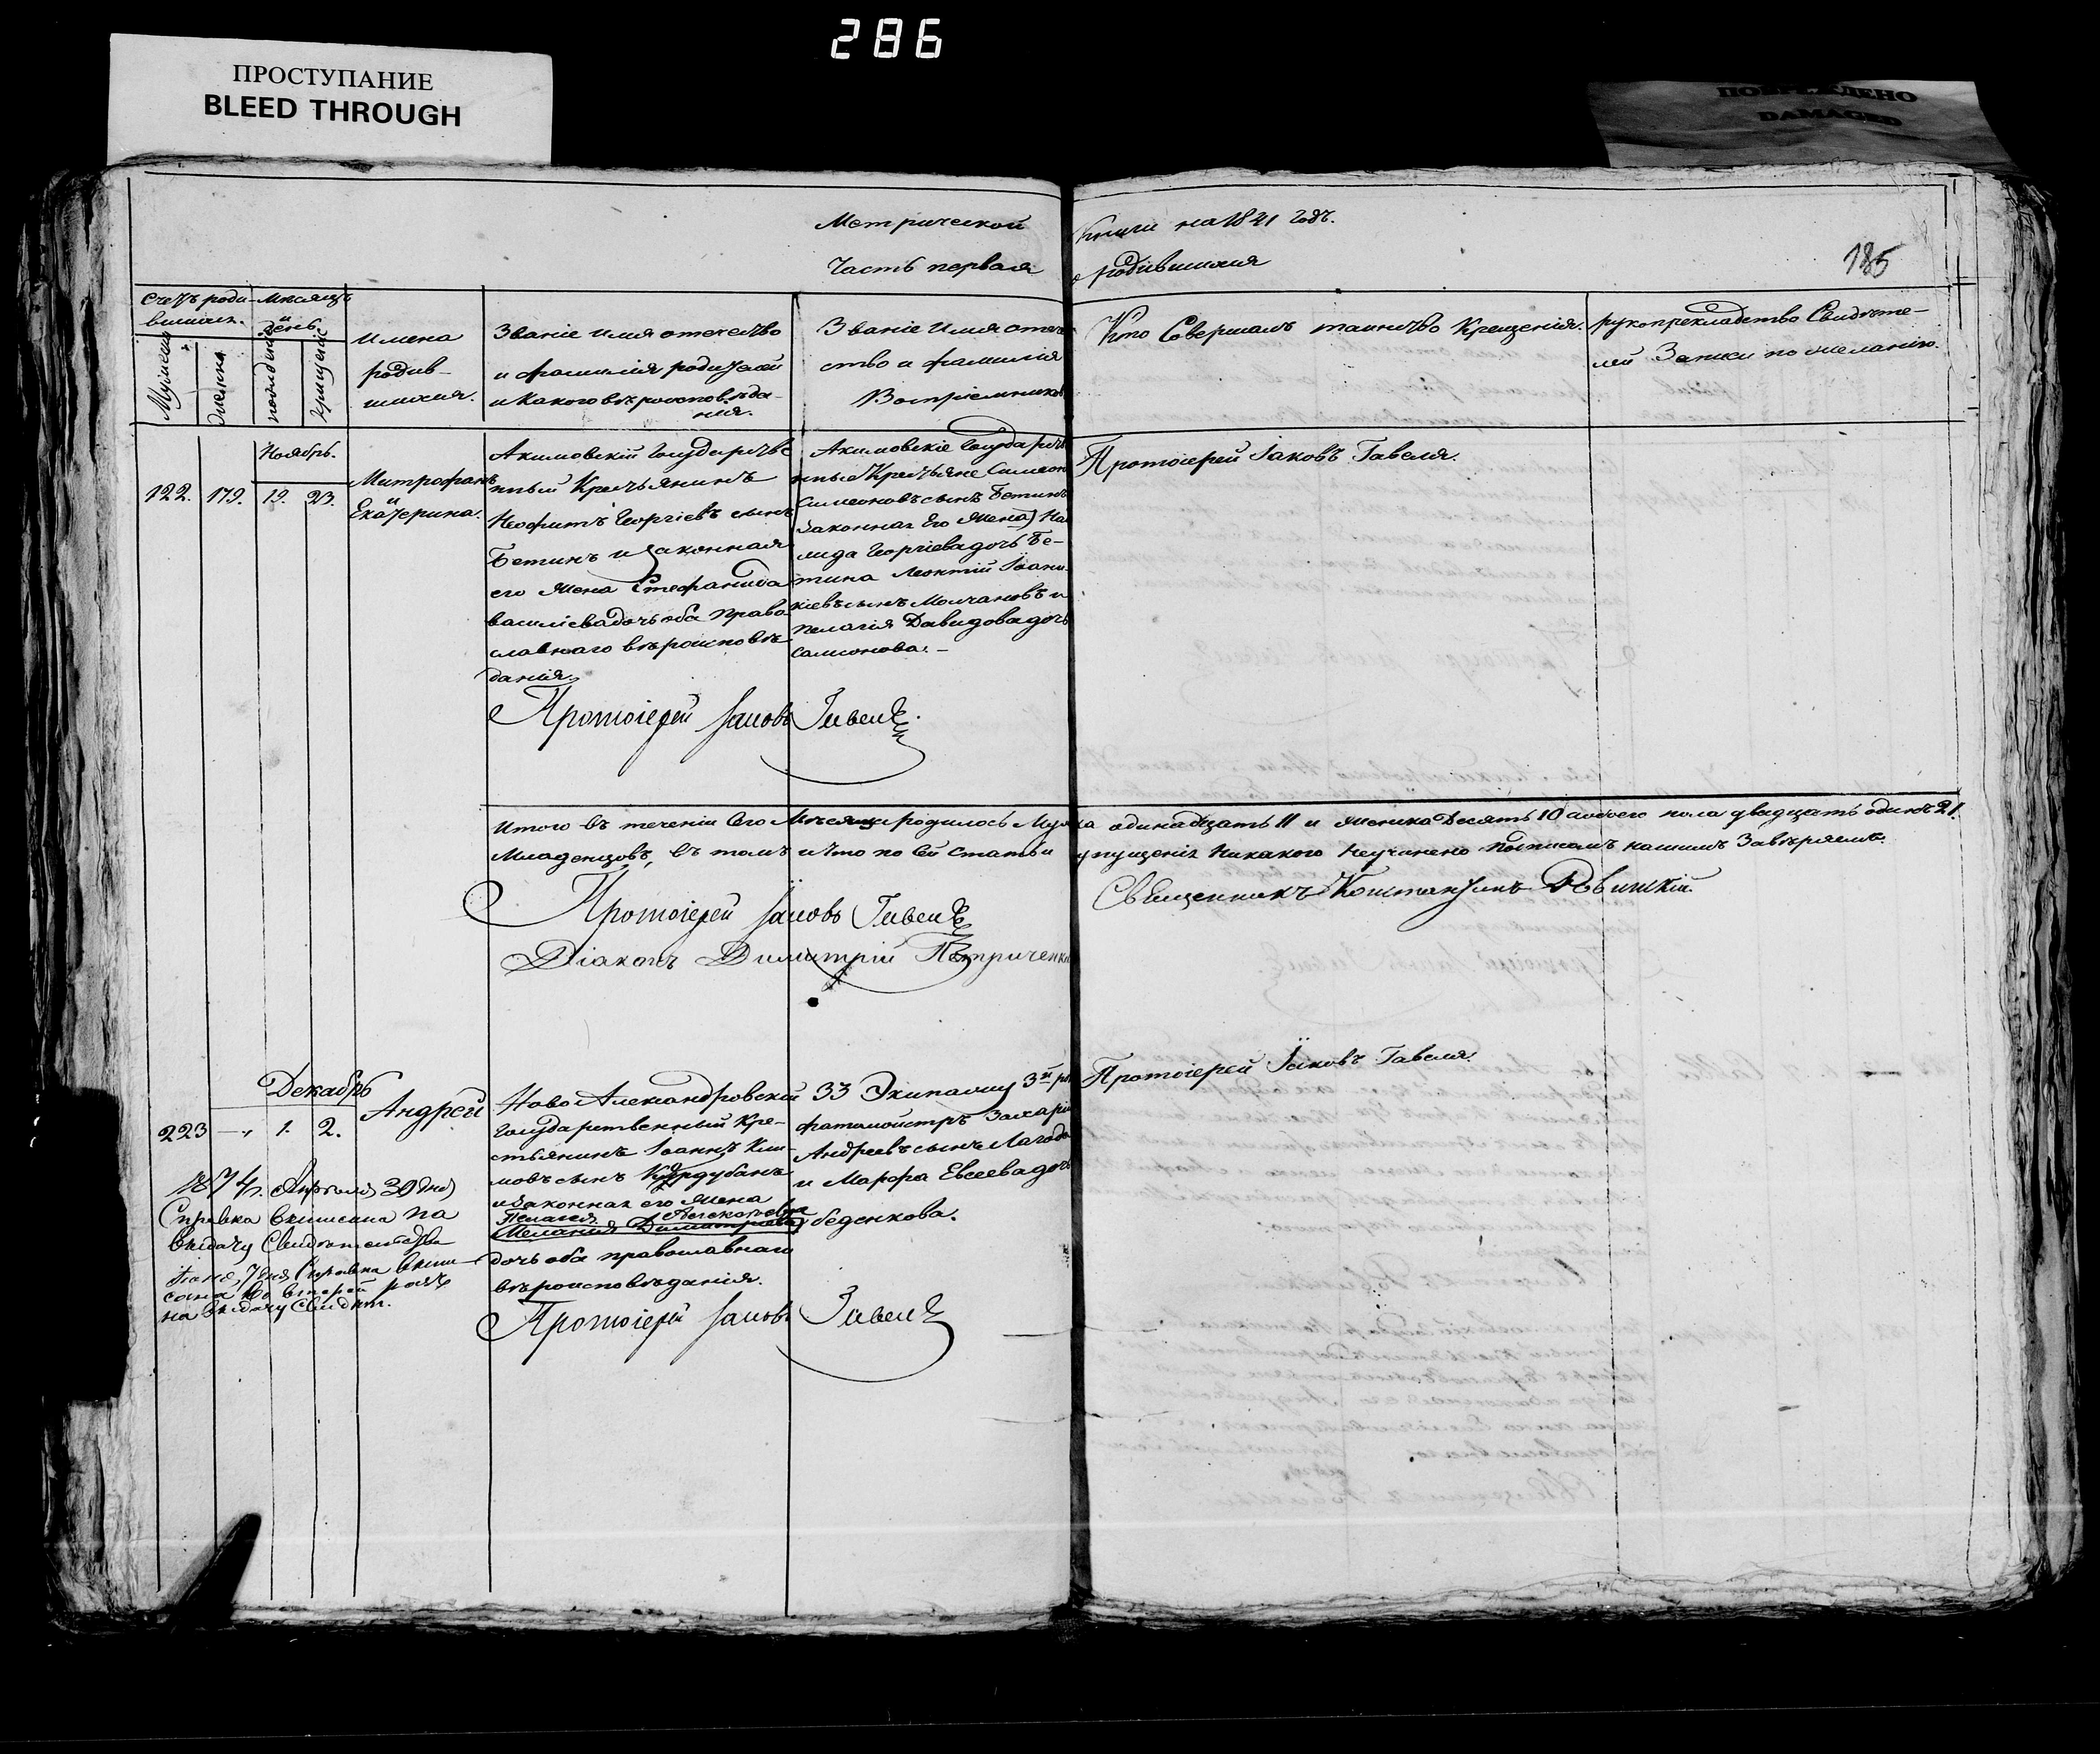 286
ПРОСТУПАНИЕ
BLEED THROUGH
ПОВРЕЖДЕНО
DAMAGED
Метрической книги на 1841 годъ.
Часть первая о родившихся
185
Счетъ роди-
вшихся.
Мужеска
Женска
Месяцъ
и
день
рожденіе
крещеніе
Имена
родив-
шихся.
Званіе имя отечество
и фамилія родителей
и какого вѣроисповѣда-
нія.
Званіе имя отече
ство и фамилія
Воспріемниковъ
Кто Совершалъ таинство Крещенія.
рукоприкладство Свидѣте-
лей Записи по желанію.
Ноябрь.
122. 179. 19. 23.
Митрофанъ
и
Екатерина.
Акимовскій Государстве
нный Крестьянинъ
Неофитъ Георгіевъ сынъ
Бетинъ и законная
его жена Стефанида
василіева дочь оба право
славнаго вѣроисповѣ
данія.
Акимовскіе Государстве
нные Крестьяне Симеон
Симеоновъ сынъ Бетинъ
Законная Его Жена
лида Георгіева дочь Бе-
тина Леонтій Іоани
кіевъ сынъ Молчановъ и
Пелагія Давидова дочь
Самсонова.-
Протоіерей Іаковъ Гавеля.
Протоіерей Іаковъ Гавеля.
Итого въ теченіи Сего Мѣсяца родилось Мужска одинадцать 11 и женска Десять 10 а обоего пола двадцать одинъ 21.
Младенцовъ, въ томъ и что по сей статьи упущенія Никакого Неучинено подписомъ нашимъ Завѣряемъ.
Протоіерей Іаковъ Гавеля
Священникъ Константинъ
Діаконъ Димитрій Петриченко
Декабрь
223 — 1. 2.
Андрей
Ново Александровскій
Государственный Кре-
стьянинъ Іоаннъ Кли-
мовъ сынъ
и законная его жена
Пелагея Алексѣевна
Меланія Димитріева
дочь оба православнаго
вѣроисповѣданія.
33 Экипажу 3й ро
Захарій
Андреевъ сынъ Лагода
и Марфа Евсеева дочь
беденкова.
Протоіерей Іаковъ Гавеля.
1874 г. Апрѣля 30 дня
Справка выписана на
выдачу Свидѣтельства
7 дня Справка выпи
сана во второй разъ
на выдачу Свидѣт.
Протоіерей Іаковъ Гавеля